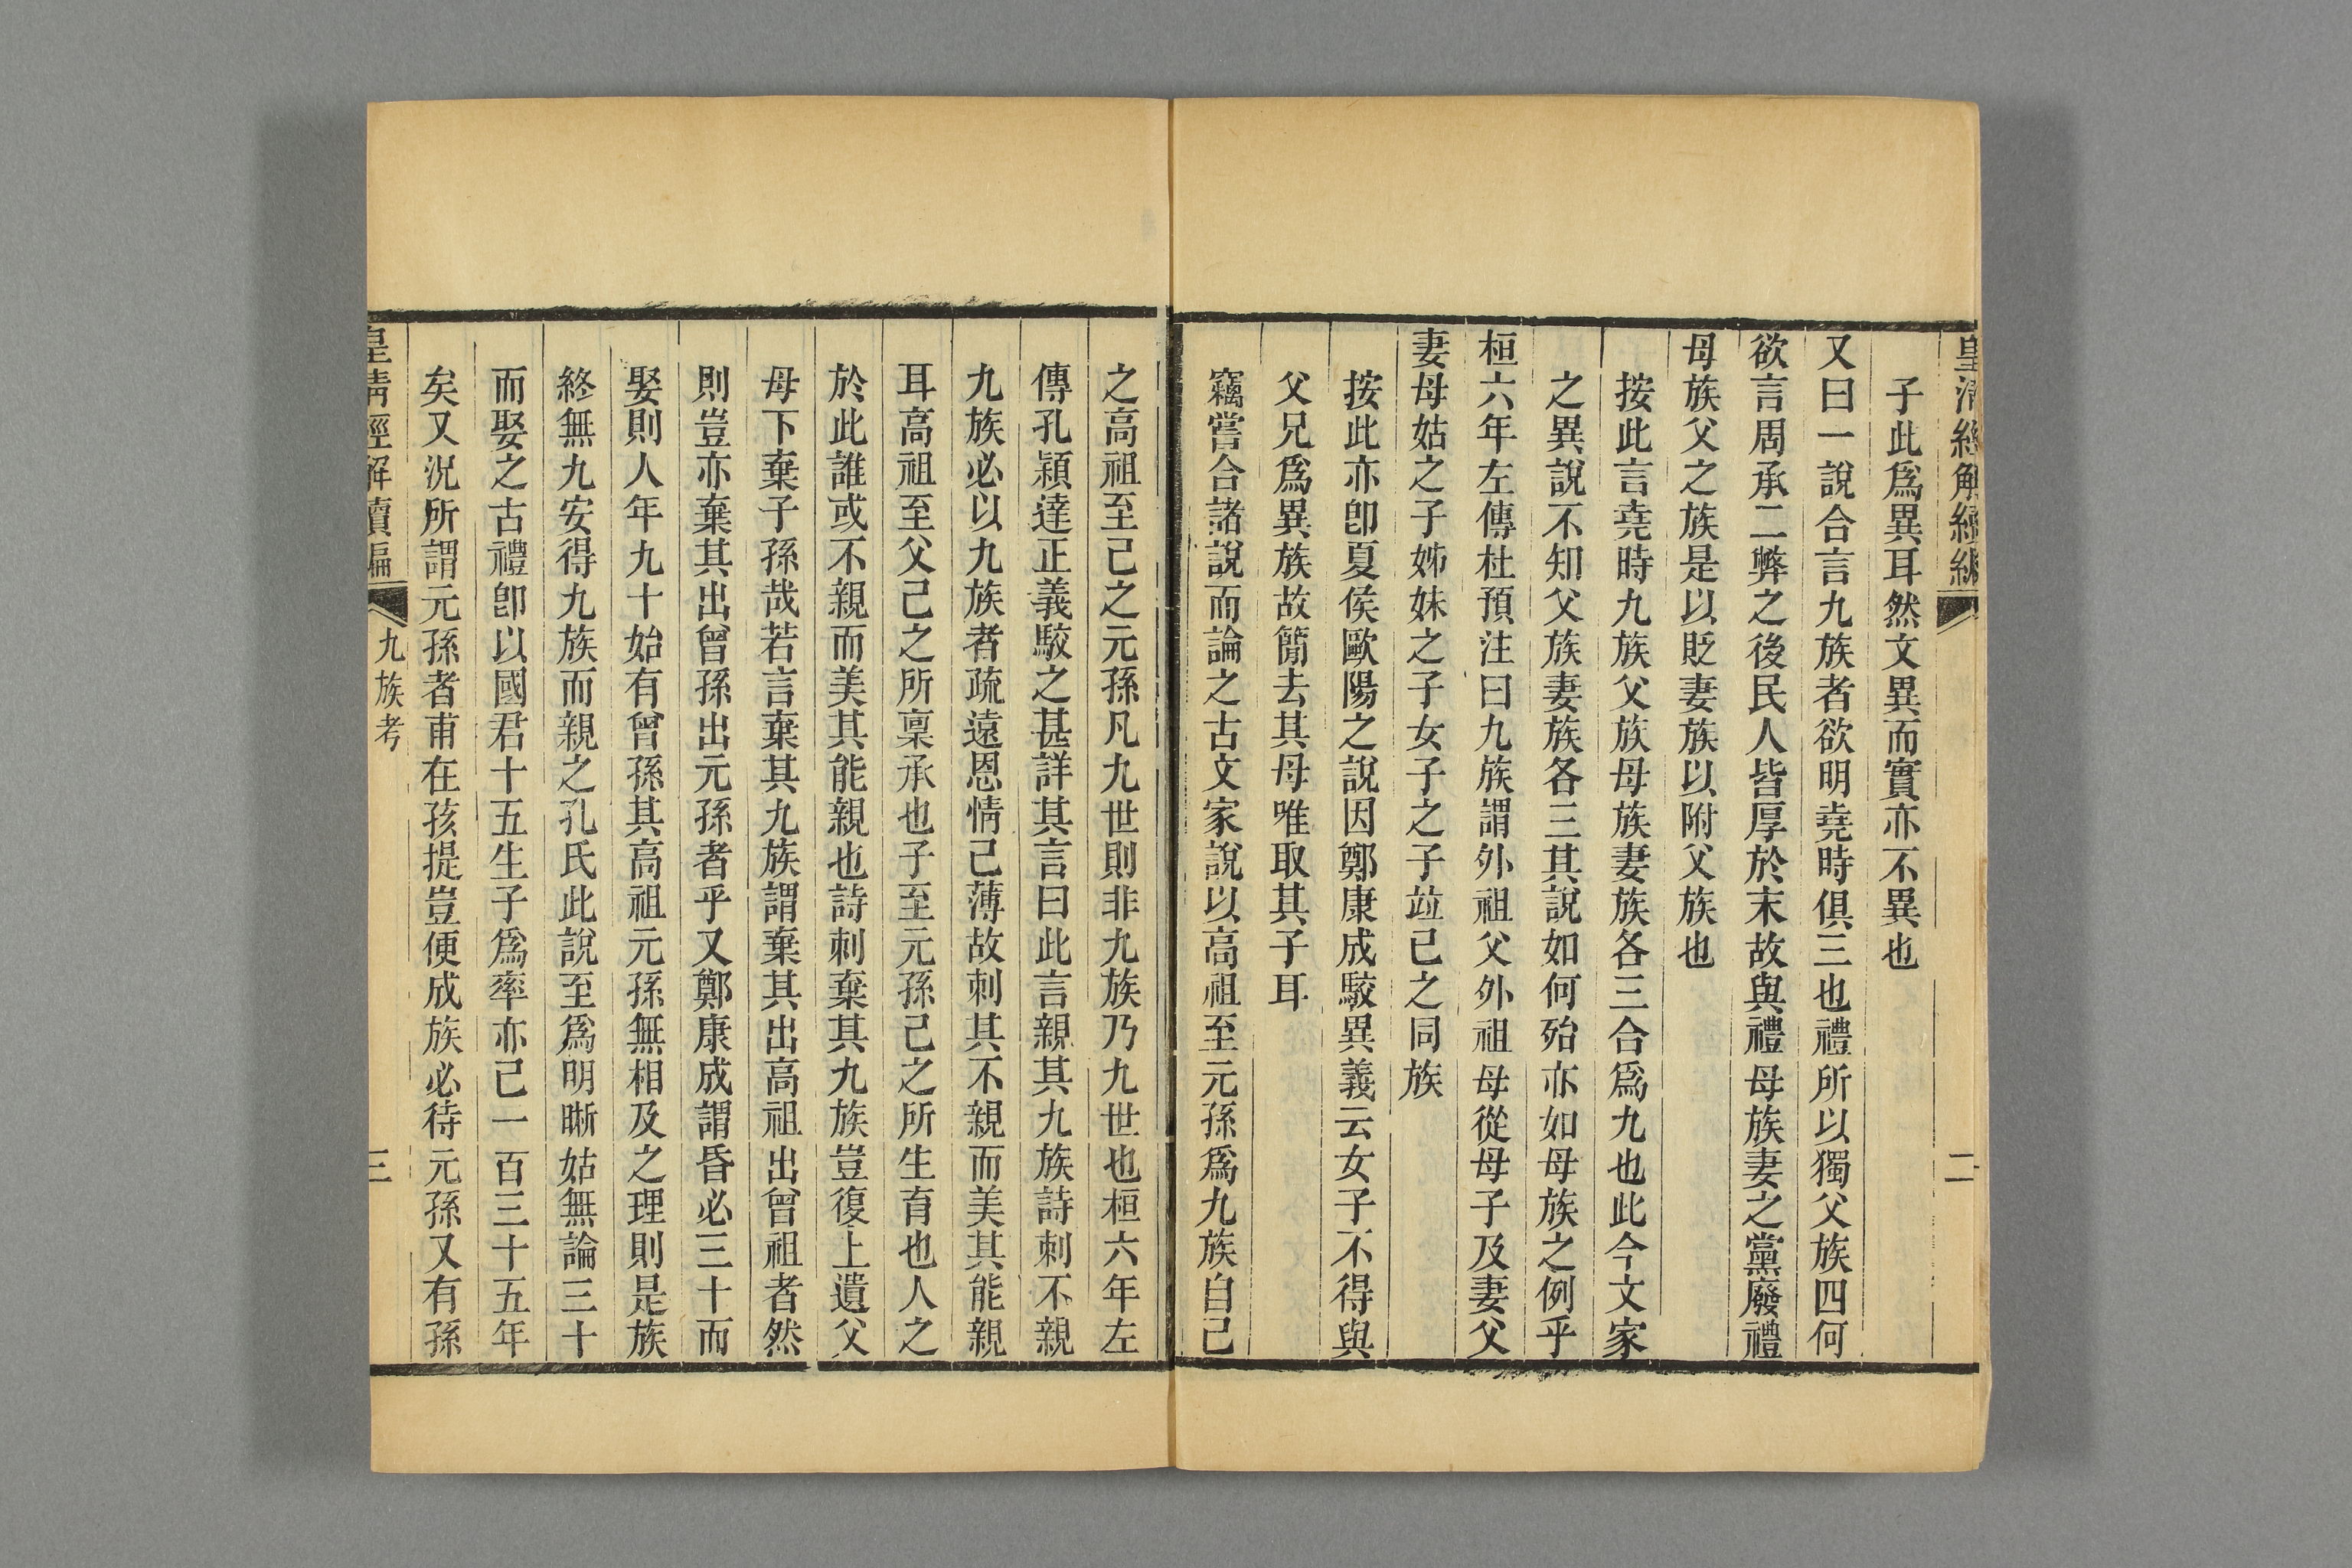 子此爲異耳然文異而實亦不異也
又曰一說合言九族者欲明堯時俱三也禮所以獨父族四何
欲言周承二弊之後民人皆厚於末故與禮母族妻之黨廢禮
母族父之族是以貶妻族以附父族也
按此言堯時九族父族母族妻族各三合爲九也此今文家
之異說不知父族妻族各三其說如何殆亦如母族之例乎
桓六年左傳杜預注曰九族謂外祖父外祖母從母子及妻父
妻母姑之子姊妹之子女子之子竝己之同族
按此亦卽夏侯歐陽之說因鄭康成駮異義云女子不得與
父兄爲異族故簡去其母唯取其子耳
竊嘗合諸說而論之古文家說以高祖至元孫爲九族自己
之高祖至己之元孫凡九世則非九族乃九世也桓六年左
傳孔穎達正義駮之甚詳其言曰此言親其九族詩刺不親
九族必以九族者疏遠恩情已薄故刺其不親而美其能親
耳高祖至父己之所稟承也子至元孫己之所生育也人之
於此誰或不親而美其能親也詩刺棄其九族豈復上遺父
母下棄子孫哉若言棄其九族謂棄其出高祖出曾祖者然
則豈亦棄其出曾孫出元孫者乎又鄭康成謂昏必三十而
娶則人年九十始有曾孫其高祖元孫無相及之理則是族
終無九安得九族而親之孔氏此說至爲明晰姑無論三十
而娶之古禮卽以國君十五生子爲率亦已一百三十五年
矣又況所謂元孫者甫在孩提豈便成族必待元孫又有孫
皇清經解續編
九族考
三
二